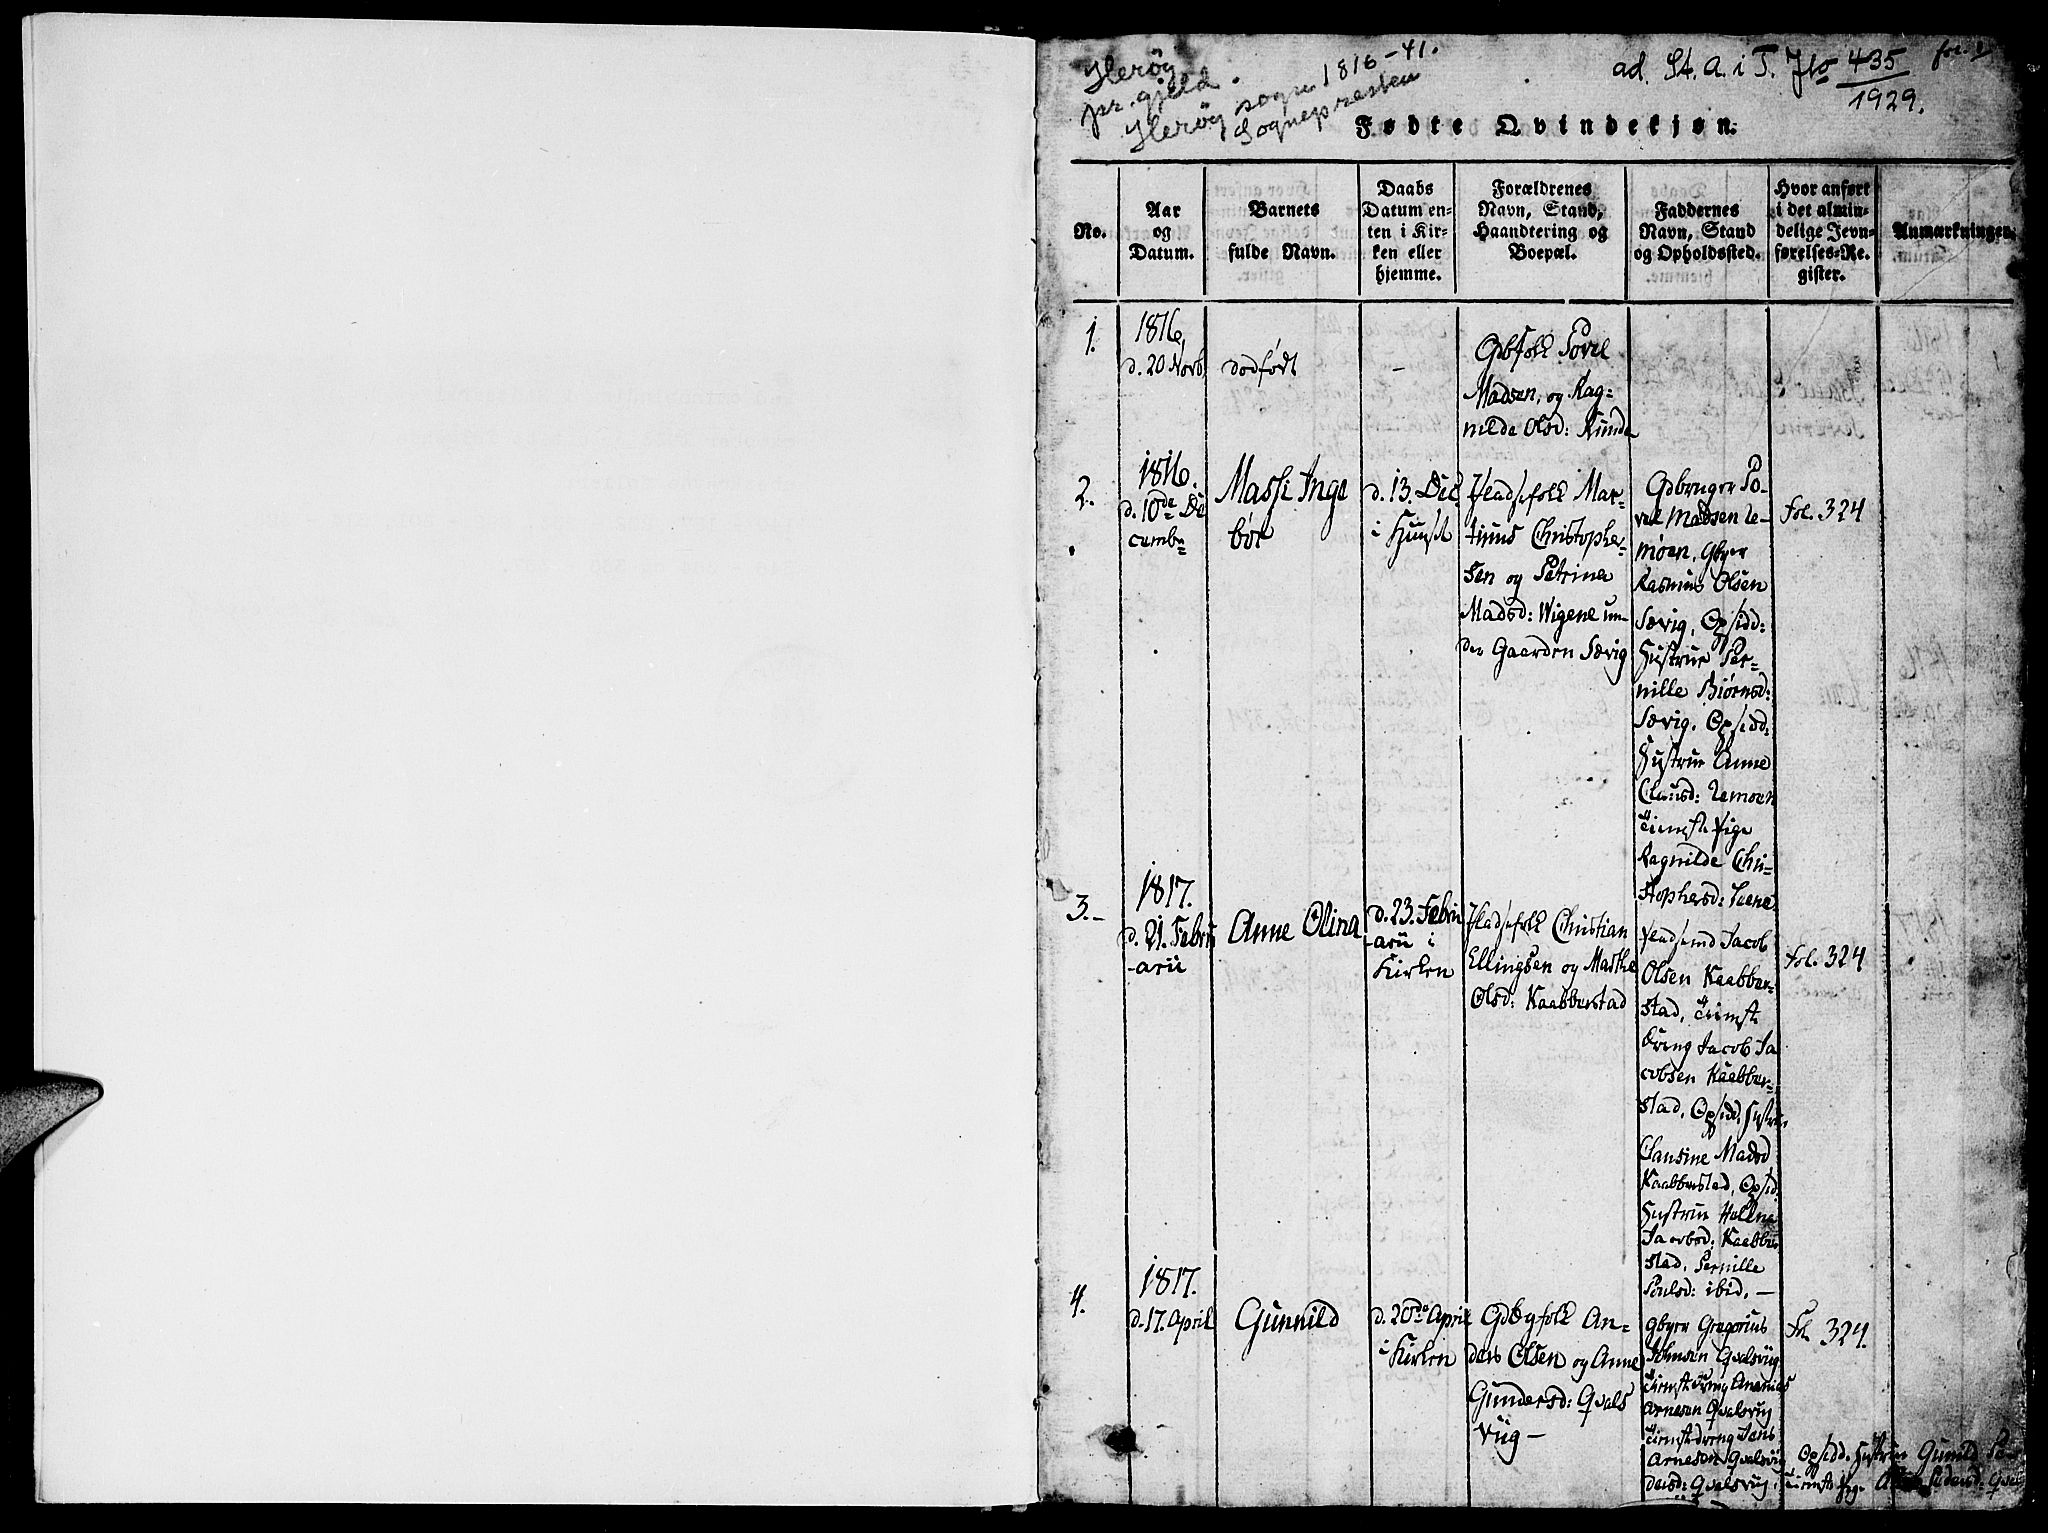 Herøy
pr. gjeld.
Herøy sogn 1816-41.
Sognepresten
ad. St. A. i T. J no 435/1929.
fol. 1
Fødte Qvindekjøn.
No.
Aar
og
Datum.
Barnets
fulde Navn.
Daabs
Datum en-
ten i Kir-
ken eller
hjemme.
Forældrenes
Navn, Stand,
Haandtering og
Boepæl.
Faddernes
Navn, Stand
og Opholdssted.
Hvor anført
i det almin-
delige Jevn-
førelses-Re-
gister.
Anmærkninger.
1.
1816,
d. 20 Novb.
dødført
-
Gdbfolk Povel
Madsen, og Rag-
nilde Olsd:
2.
1816.
d. 10de De
cembr
Masse Inge
bør
d. 13. Dec
i Hjemst
Huusfolk Mar-
tinus Christopher-
sen og Petrina
Madsd: Wigene un-
der Gaarden Søvig
Gdbruger Po-
vel Madsen
moen, Gbgr
Rasmus Olsen
Søvig, Opsidd:
Hustrue Per-
nille Biørnsd:
Søvig, Opsidd:
Hustrue Anne
Clausd:
Tienste Pige
Ragnilde Chri-
stophersd:
fol. 324
3.-
1817.
d. 21. Febru
-arii
Anne Olina
d. 23. Febru
-arii i
Kirken
Huusfolk Christian
Ellingsen og Marthe
Olsd: Kaabberstad
Huusmd Jacob
Olsen Kaabber-
stad, Tienst
dreng Jacob Ja
cobsen Kaabber-
stad, Opsidd. Hustrue
Clausine Madsd
Kaabberstad, Opsid.
Hustrue
Jacobsd: Kaabber
stad, Pernille
Poulsd: ibid. -
fol. 324
4.
1817.
d. 17. April
Gunnild
d. 20de April
i Kirken
Gdbgfolk An-
ders Olsen og Anne
Gundersd: Qvals
viig -
Gbgr Gregorius
Johnsen Qvalsviig
Tienstdreng Ananias
Arnesen Qvalsviig
Tienstdreng Jens
Arnesen Qvalsviig Opsidd. Hustrue Gunild Pe-
dersd: Qvalsviig, Tienste Pige Pedersd: Qval
Fol. 324.